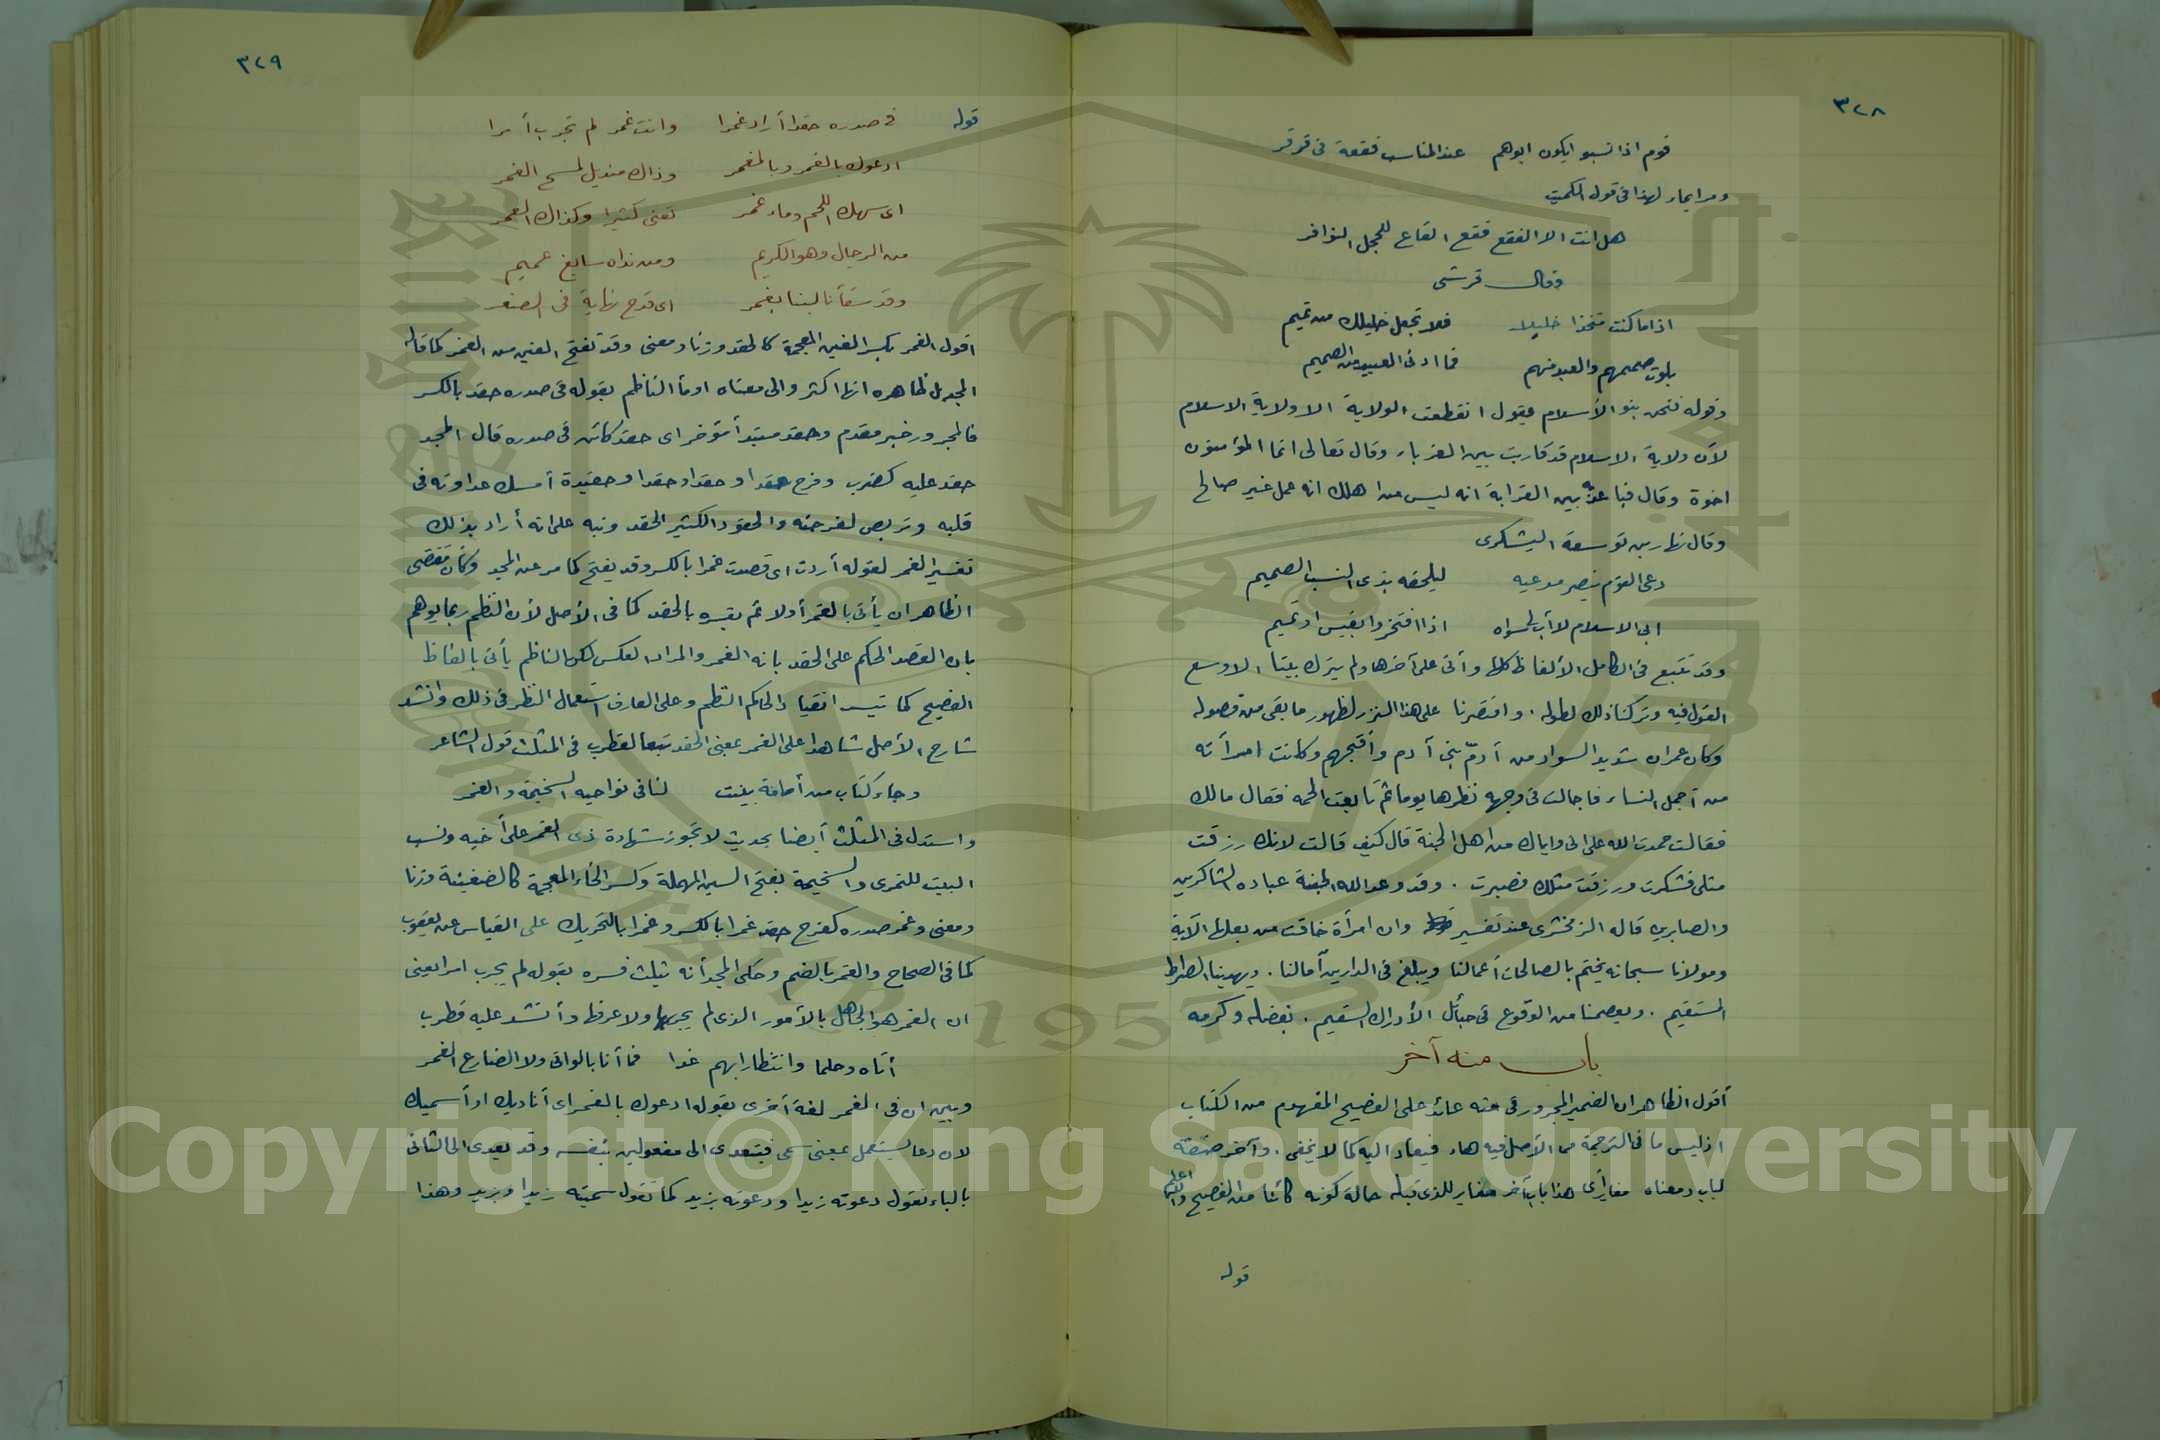 ٣٢٨
قوم اذا نسبوا يكون ابوهم عند المناسب فقعة فى قرقر
ومر ايماء لهذا فى قول الكميت
هل انت الا الفقع فقع القاع للحجل النوافر
وقال قرشى
اذا ما كنت متخذا خليلا فلا تجعل خليلك من تميم
بلوت صميمهم والعبد منهم فما ادنى العبيد من الصميم
وقوله فنحن بنو الأسلام فيقول انقطعت الولاية الا ولاية الاسلام
لأن ولاية الاسلام قد قاربت بين الغرباء وقال تعالى انما المؤمنون
اخوة وقال فباعد به بين القرابة انه ليس من اهلك انه عمل غير صالح
وقال نهار بن توسعة اليشكرى
دعى القوم ينصر مدعيه ليلحقه بذى النسب الصميم
ابى الاسلام لا أب لى سواه اذا افتخروا بقيس او تميم
وقد تتبع فى الكامل الألفاظ كلها وأتى على آخرها ولم يترك بيتا الا وسع
القول فيه وتركنا ذلك لطوله . واقتصرنا على هذا النزر لظهور ما بقى من فصوله
وكان عمران شديد السواد من آدمّ بنى آدم وأقبحهم وكانت امرأته
من أجمل النساء فاجالت فى وجهه نظرها يوما ثم تابعت الحمد فقال مالك
فقالت حمدت الله على انى واياك من اهل الجنة قال كيف قالت لانك رزقت
مثلى فشكرت ورزقت مثلك فصبرت . وقد وعد الله الجنة عباده الشاكرين
والصابرين قاله الزمخشرى عند تفسير وان امرأة خافت من بعلها الآية
ومولانا سبحانه يختم بالصالحات أعمالنا ويبلغ فى الدارين آمالنا . ويهدينا الصراط
المستقيم . ويعصمنا من الوقوع فى حبائل الأدراك السقيم . بفضله وكرمه
باب منه آخر
أقول الظاهر ان الضمير المجرور فى منه عائد على الفصيح المفهوم من الكتاب
اذ ليس ما فى الترجمة من الأصل فيه هاء فيعاد اليه كما لا يخفى . وآخر صفته
لباب ومعناه مغاير أى هذا باب آخر مغاير للذى قبله حالة كونه كائنا من الفصيح والله اعلم
قوله
٣٢٩
قوله فى صدره حقد أراد غمرا وانت غمر لم تجرب أمرا
ادعوك بالغمر وبالمغمر وذاك منديل لمسح الغمر
اى سهك اللحم وماء غمر تعنى كثيرا وكذاك الغمر
من الرجال وهو الكريم ومن نداه سابغ عميم
وقد سقانا لبنا بغمر اى قدح نهاية فى الصغر
اقول الغمر بكسر الغين المعجمة كالحقد وزنا ومعنى وقد تفتح الغين من الغمر كما قاله
المجد بل ظاهره انها اكثر والى معناه اومأ الناظم بقوله فى صدره حقد بالكسر
فالمجرور خبر مقدم وحقد مبتدأ مؤخر اى حقد كائن فى صدره قال المجد
حقد عليه كضرب وفرح حقدا وحقدا وحقدا وحقيدة أمسك عداوته فى
قلبه وتربص لفرصته والحقود الكثير الحقد ونبه على انه أراد بذلك
تفسير الغمر لقوله أردت اى قصدت غمرا بالكسر وقد يفتح كما مر عن المجد وكان مقتضى
الظاهر ان يأتى بالغمر أولا ثم يفسره بالحقد كما فى الأصل لأن النظم ربما يوهم
بان القصد الحكم على الحقد بانه الغمر والمراد العكس لكن الناظم يأتى بالفاظ
الفصيح كما تيسر انقيادا لحاكم النظم وعلى العارف استعمال النظر فى ذلك وانشد
شارح الأصل شاهدا على الغمر بمعنى الحقد تبعا لقطرب فى المثلث قول الشاعر
وجاء كتاب من أمامة بينت لنا فى نواحيه السخيمة والغمر
واستدل فى المثلث أيضا بحديث لا تجوز شهادة ذى الغمر على أخيه ونسب
البيت للنمرى والسخيمة بفتح السين المهملة وكسر الخاء المعجمة كالضغينة وزنا
ومعنى وغمر صدره كفرح حقد غمرا بالكسر وغمرا بالتحريك على القياس عن يعقوب
كما فى الصحاح والغمر بالضم وحكى المجد أنه يثلث فسره بقوله لم يجرب امرا يعنى
ان الغمر هو الجاهل بالأمور الذى لم يجربها ولا عرفها وأنشد عليه قطرب
أناة وحلما وانتظارا بهم غدا فما أنا بالوانى ولا الضارع الغمر
وبين ان فى الغمر لغة أخرى بقوله ادعوك بالغمر اى أناديك او أسميك
لان دعا يستعمل بمعنى سمى فيتعدى الى مفعولين بنفسه وقد يعدى الى الثانى
بالباء تقول دعوته زيدا ودعوته بزيد كما تقول سميته زيدا وبزيد وهذا
1957
Copyright © King Saud University